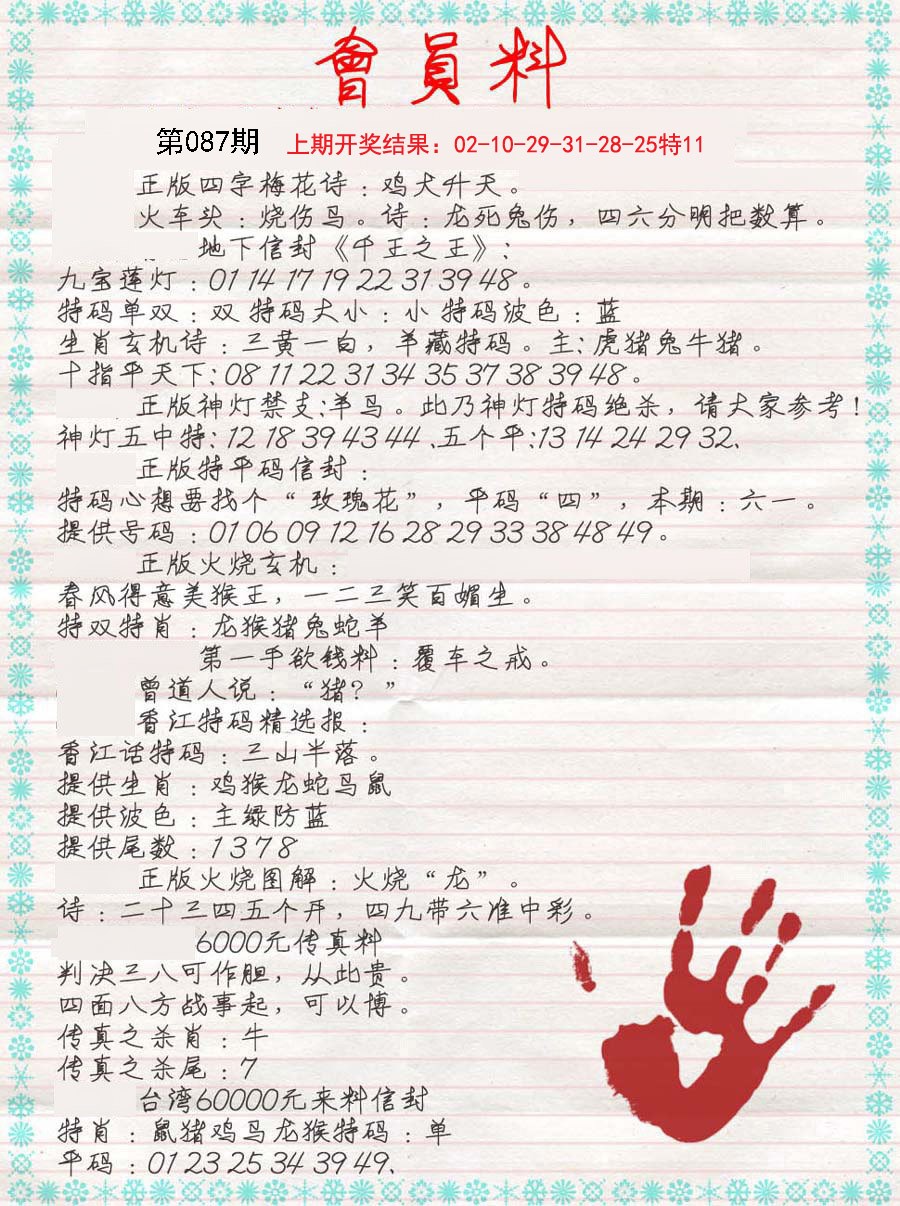 會員料
第087期 上期开奖结果：02-10-29-31-28-25特11
正版四字梅花诗：鸡犬升天。
火车头：烧伤鸟。诗：龙死兔伤，四六分明把数算。
地下信封《千王之王》：
九宝莲灯：01 14 17 19 22 31 39 48。
特码单双：双 特码大小：小 特码波色：蓝
生肖玄机诗：三黄一白，羊藏特码。主：虎猪兔牛猪。
十指平天下：08 11 22 31 34 35 37 38 39 48。
正版神灯禁支：羊鸟。此乃神灯特码绝杀，请大家参考！
神灯五中特：12 18 39 43 44、五个平：13 14 24 29 32、
正版特平码信封：
特码心想要找个“玫瑰花”，平码“四”，本期：六一。
提供号码：01 06 09 12 16 28 29 33 38 48 49。
正版火烧玄机：
春风得意美猴王，一二三笑百媚生。
特双特肖：龙猴猪兔蛇羊
第一手欲钱料：覆车之戒。
曾道人说：“猪？”
香江特码精选报：
香江话特码：三山半落。
提供生肖：鸡猴龙蛇鸟鼠
提供波色：主绿防蓝
提供尾数：1 3 7 8
正版火烧图解：火烧“龙”。
诗：二十三四五个开，四九带六准中彩。
6000元传真料
判决三八可作胆，从此贵。
四面八方战事起，可以博。
传真之杀肖：牛
传真之杀尾：7
台湾60000元来料信封
特肖：鼠猪鸡马龙猴特码：单
平码：01 23 25 34 39 49、